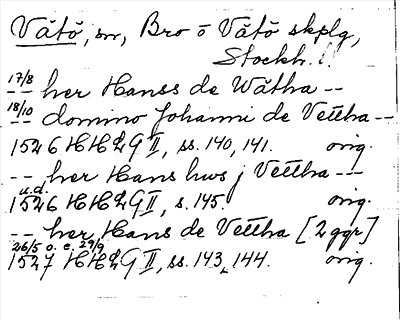 Vätö, sn, Bro o Vätö skplg,
Stockh. l.
17/8
-- her Hanss de Wätha --
18/10
-- domino Johanni de Vettha --
1526 HH2G II, ss. 140, 141. orig.
-- her Hans hws j Vettha --
u.d.
1526 HH2G II, s. 145. orig.
-- her Hans de Vettha [2 ggr]
26/5 o. e. 29/9
1527 HH2G II, ss. 143, 144. orig.